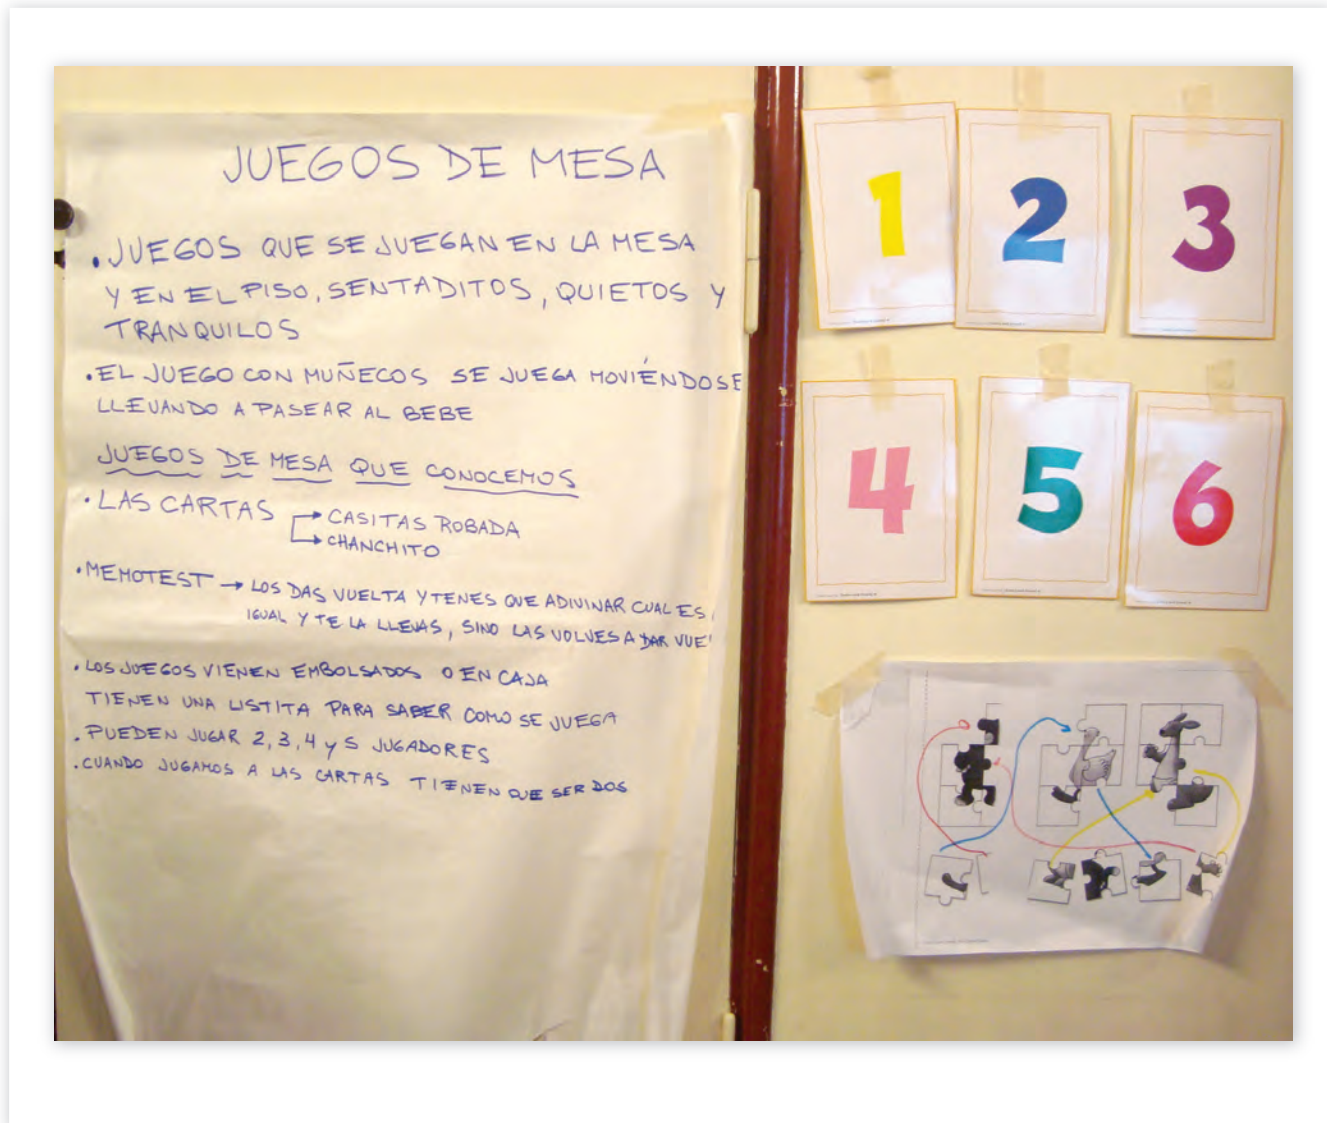 JUEGOS DE MESA
• JUEGOS QUE SE JUEGAN EN LA MESA
Y EN EL PISO, SENTADITOS, QUIETOS Y
TRANQUILOS
• EL JUEGO CON MUÑECOS SE JUEGA MOVIÉNDOSE
LLEVANDO A PASEAR AL BEBE
JUEGOS DE MESA QUE CONOCEMOS
• LAS CARTAS → CASITAS ROBADA
→ CHANCHITO
• MEMOTEST → LOS DAS VUELTA Y TENES QUE ADIVINAR CUAL ES
IGUAL Y TE LA LLEVAS, SINO LAS VOLVES A DAR VUE
• LOS JUEGOS VIENEN EMBOLSADOS O EN CAJA
TIENEN UNA LISTITA PARA SABER COMO SE JUEGA
• PUEDEN JUGAR 2, 3, 4 y 5 JUGADORES
• CUANDO JUGAMOS A LAS CARTAS TIENEN QUE SER DOS
1 2 3
4 5 6